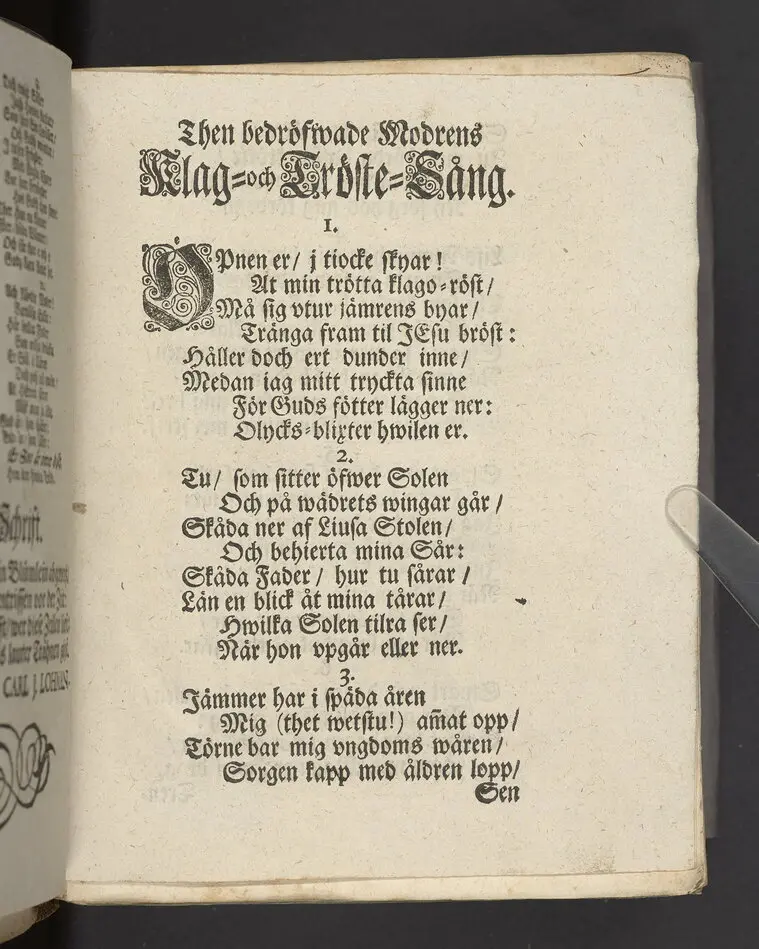 Then bedröfwade Modrens
Klag-och Tröste-Sång.
1.
OPnen er/ j tiocke skyar!
At min trötta klago-röst/
Må sig vtur jämrens byar/
Tränga fram til JEsu bröst:
Håller doch ert dunder inne/
Medan iag mitt tryckta sinne
För Guds fötter lägger ner:
Olycks-blixter hwilen er.
2.
Tu/ som sitter öfwer Solen
Och på wädrets wingar går/
Skåda ner af Liusa Stolen/
Och behierta mina Sår:
Skåda Fader/ hur tu sårar/
Län en blick åt mina tårar/
Hwilka Solen tilra ser/
När hon vpgår eller ner.
3.
Jämmer har i späda åren
Mig (thet wetstu!) am̃at opp/
Törne bar mig vngdoms wåren/
Sorgen kapp med åldren lopp/
Sen
Schrift.
CARL J. LOHMS-